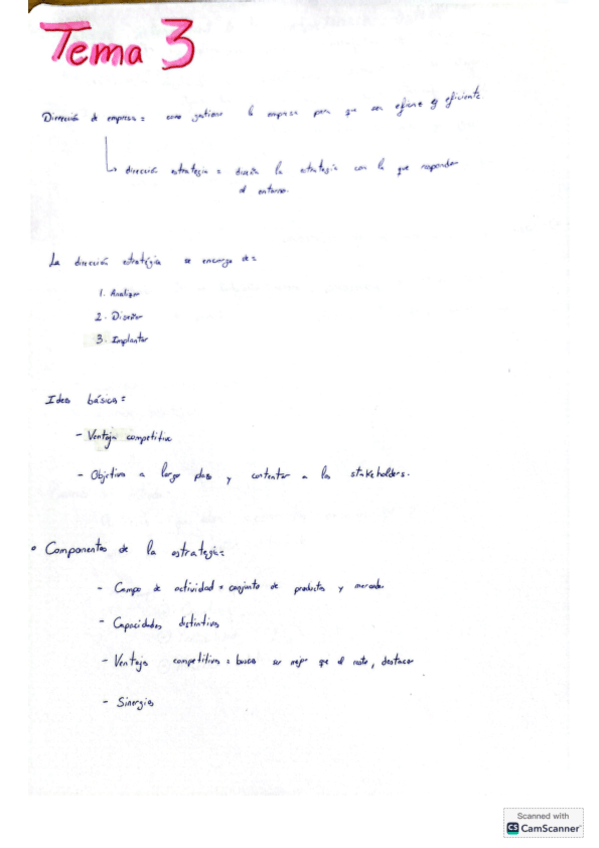 Tema 3
Dirección de empresa = como gestionar la empresa para que sea eficaz y eficiente.
↳ dirección estrategia = diseña la estrategia con la que responder
al entorno.
La dirección estratégica se encarga de =
1. Analizar
2. Diseñar
3. Implantar
Ideas básicas =
- Ventaja competitiva
- Objetivos a largo plazo y contentar a los stakeholders.
• Componentes de la estrategia =
- Campo de actividad = conjunto de productos y mercados
- Capacidades distintivas
- Ventaja competitiva = busca ser mejor que el resto, destacar
- Sinergias
Scanned with
CS CamScanner